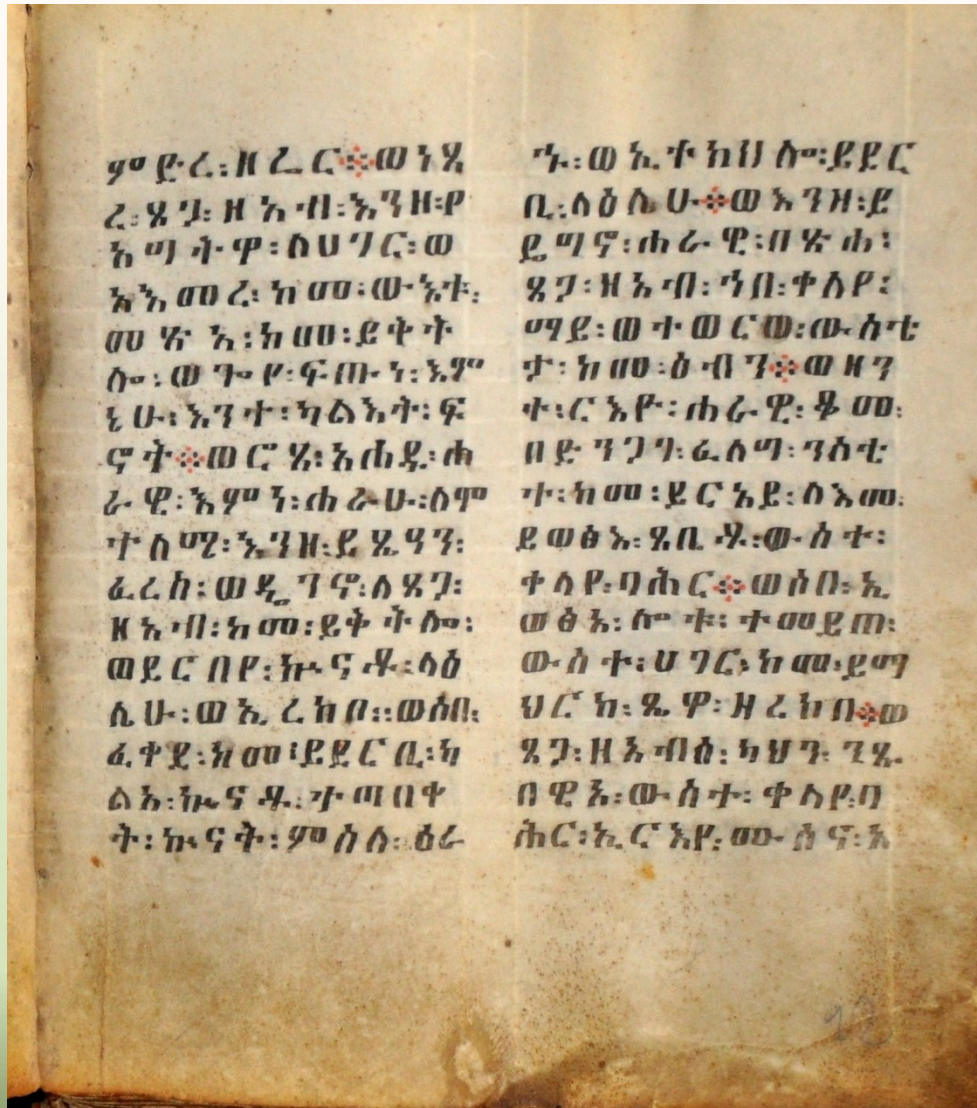 ምድረ፡ዘፈር፨ወነጺ
ረ፡ጼጋ፡ዘአብ፡እንዘ፡የ
አጣትዋ፡ለሀገር፡ወ
አእመረ፡ከመ፡ውእቱ፡
መጽአ፡ከመ፡ይቅት
ሎ፡ወጐየ፡ፍጡነ፡እም
ኔሁ፡እንተ፡ካልእት፡ፍ
ኖት፨ወሮጼ፡አሐዱ፡ሐ
ራዊ፡እምነ፡ሐራሁ፡ለሞ
ተለሚ፡እንዘ፡ይጼዓን፡
ፈረሰ፡ወዴገኖ፡ለጼጋ፡
ዘአብ፡ከመ፡ይቅትሎ፡
ወይርበየ፡ኵናቶ፡ላዕ
ሌሁ፡ወኢረከቦ፡፡ወሰበ፡
ፈቀደ፡ከመ፡ይደርቢ፡ካ
ልአ፡ኵናቶ፡ተጣበቀ
ት፡ኵናት፡ምስለ፡ዕራ
ኁ፡ወኢተክህሎ፡ይደር
ቢ፡ላዕሌሁ፨ወእንዘ፡ይ
ዴግኖ፡ሐራዊ፡በጽሐ፡
ጼጋ፡ዘአብ፡ኀበ፡ቀላየ፡
ማይ፡ወተወርወ፡ውስቴ
ታ፡ከመ፡ዕብን፨ወዘን
ተ፡ርእዮ፡ሐራዊ፡ቆመ፡
በድንጋፄ፡ፈለግ፡ንስቲ
ተ፡ከመ፡ይርአይ፡ለእመ፡
ይወፅእ፡ጼቢዶ፡ውስተ፡
ቀላየ፡ባሕር፨ወሰበ፡ኢ
ወፅአ፡ሎቱ፡ተመይጠ፡
ውስተ፡ሀገር፡ከመ፡ይማ
ህርክ፡ጼዋ፡ዘረከበ፨ወ
ጼጋ፡ዘአብሰ፡ካህን፡ነጺ
በዊአ፡ውስተ፡ቀላየ፡ባ
ሕር፡ኢርእየ፡ሙስና፡አ